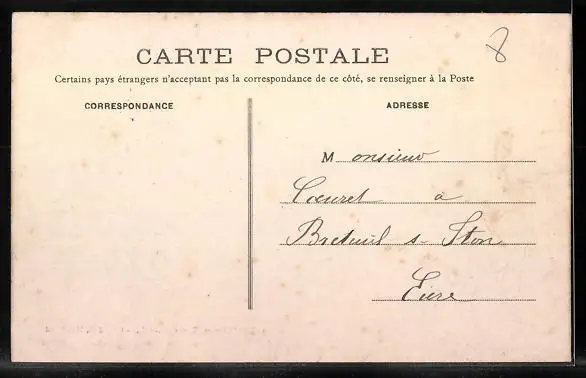 CARTE POSTALE
8
Certains pays étrangers n'acceptant pas la correspondance de ce côté, se renseigner à la Poste
CORRESPONDANCE
ADRESSE
Monsieur
Cœuret à
Breteuil s- Iton
Eure